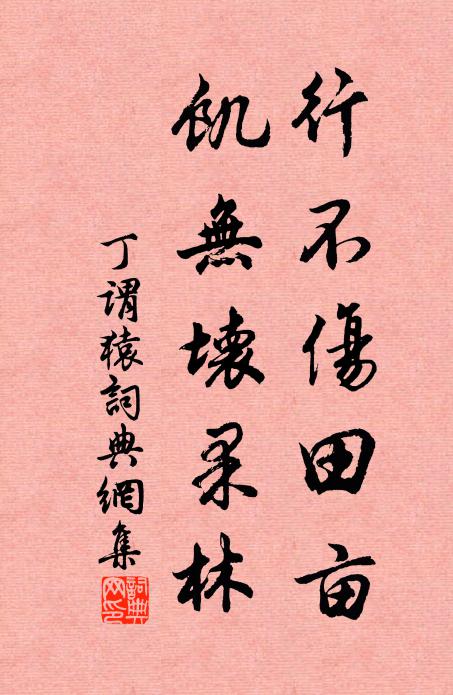 行不傷田亩
飢無壊果林
丁謂猿詞典網集
詞典网印